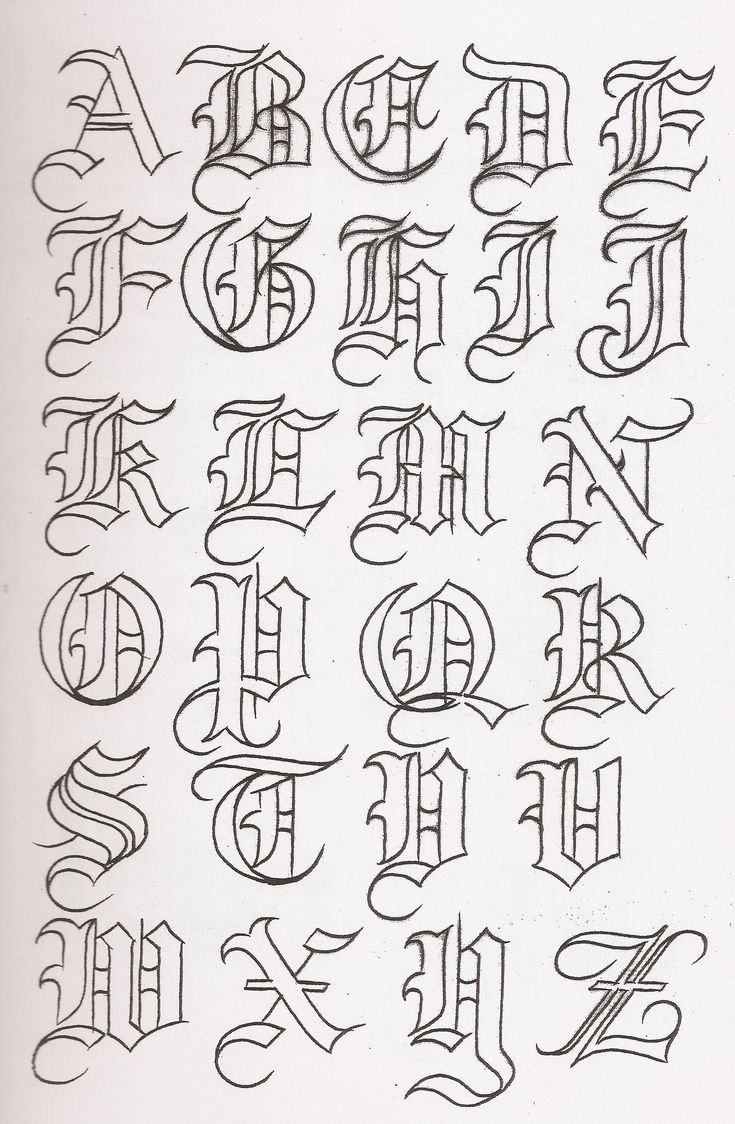 A B C D E
F G H I J
K L M N
O P Q R
S T U V
W X Y Z